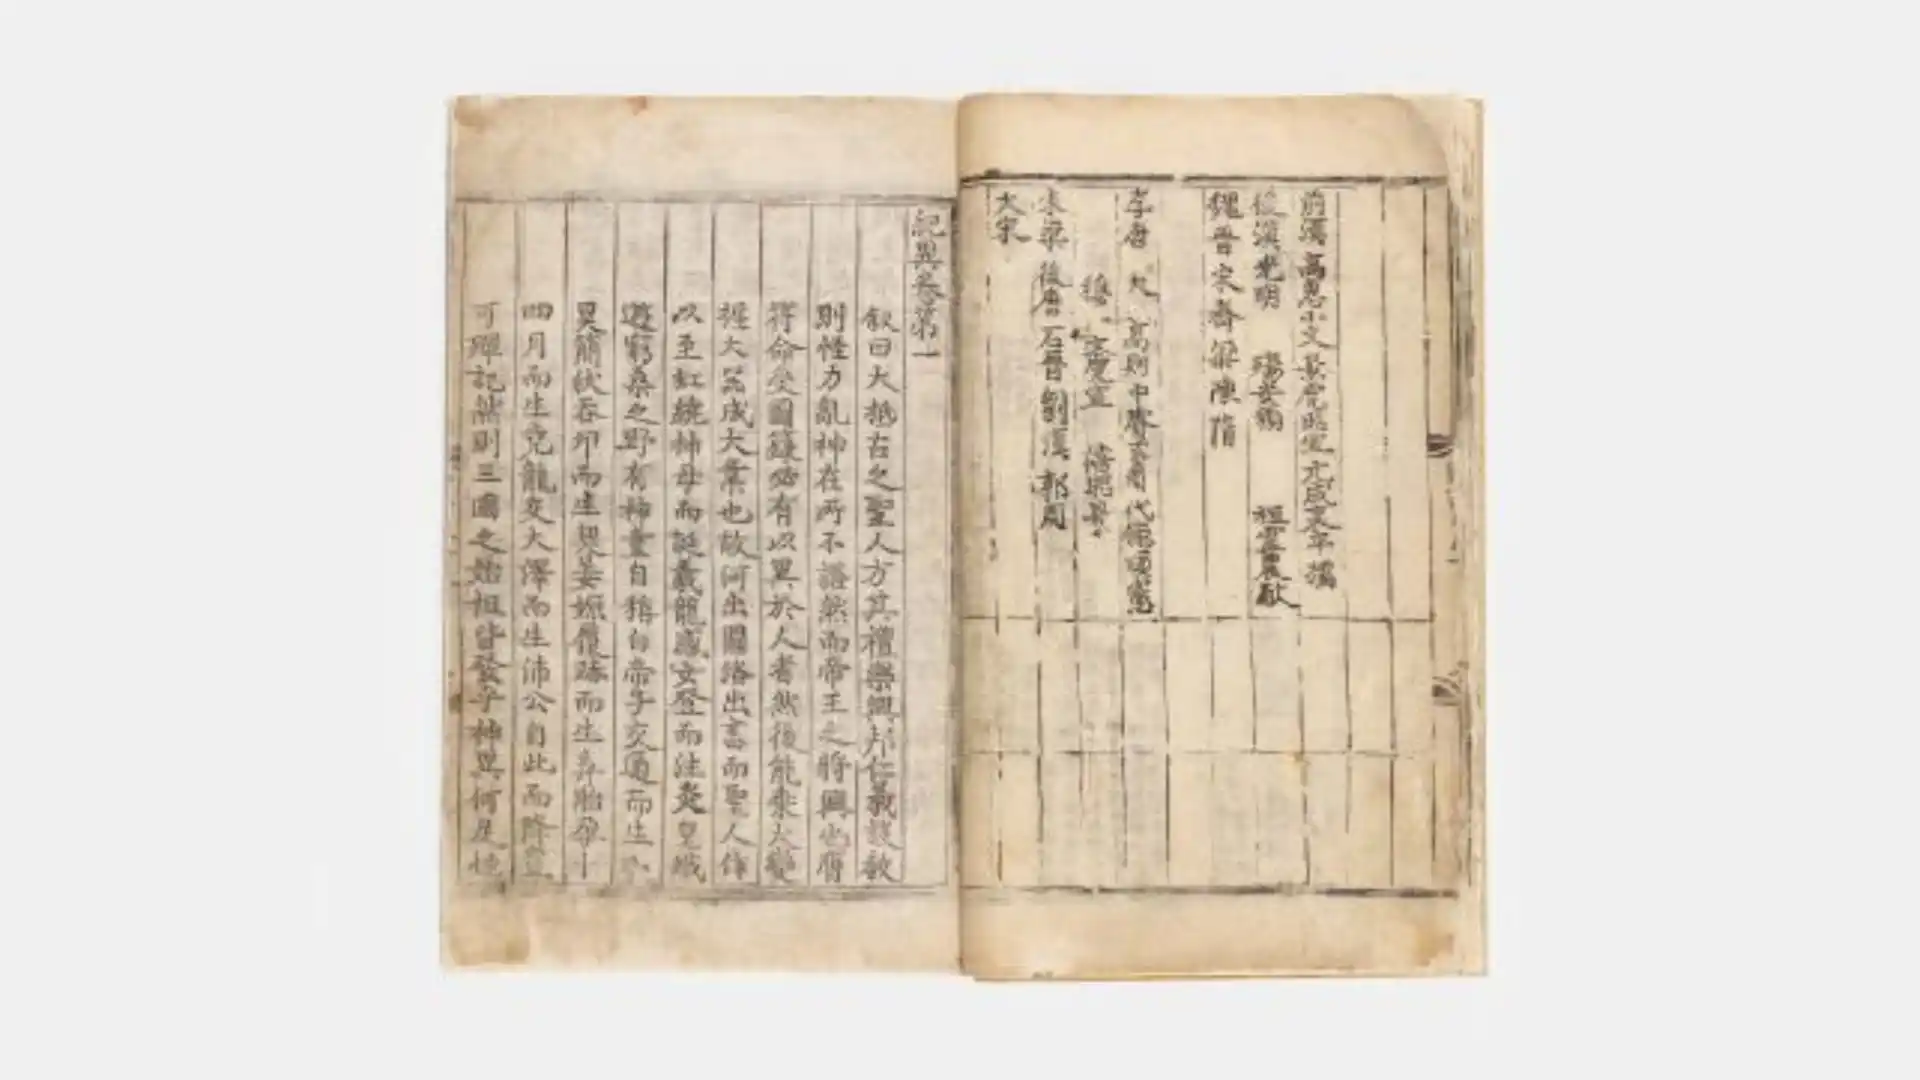 前漢 高惠小文景虎昭宣元成哀平孺
後漢光明 殤安順 桓靈農獻
魏晉宋齊梁陳隋
李唐 大 高則中睿玄肅代德順憲
穆 虎宣 僖昭景
朱梁後唐石晉劉漢郭周
大宋
紀異卷第一
叙曰大抵古之聖人方其禮樂興邦仁義設敎
則怪力亂神在所不語然而帝王之將興也膺
符命受圖籙必有以異於人者然後能乘大變
握大器成大業也故河出圖洛出書而聖人作
以至虹繞神母而誕羲龍感女登而注炎皇娥
遊窮桑之野有神童自稱白帝子交通而生小
昊簡狄吞卵而生契姜嫄履跡而生弃胎孕十
四月而生堯龍交大澤而生沛公自此而降豈
可殫記然則三國之始祖皆發乎神異何足怪